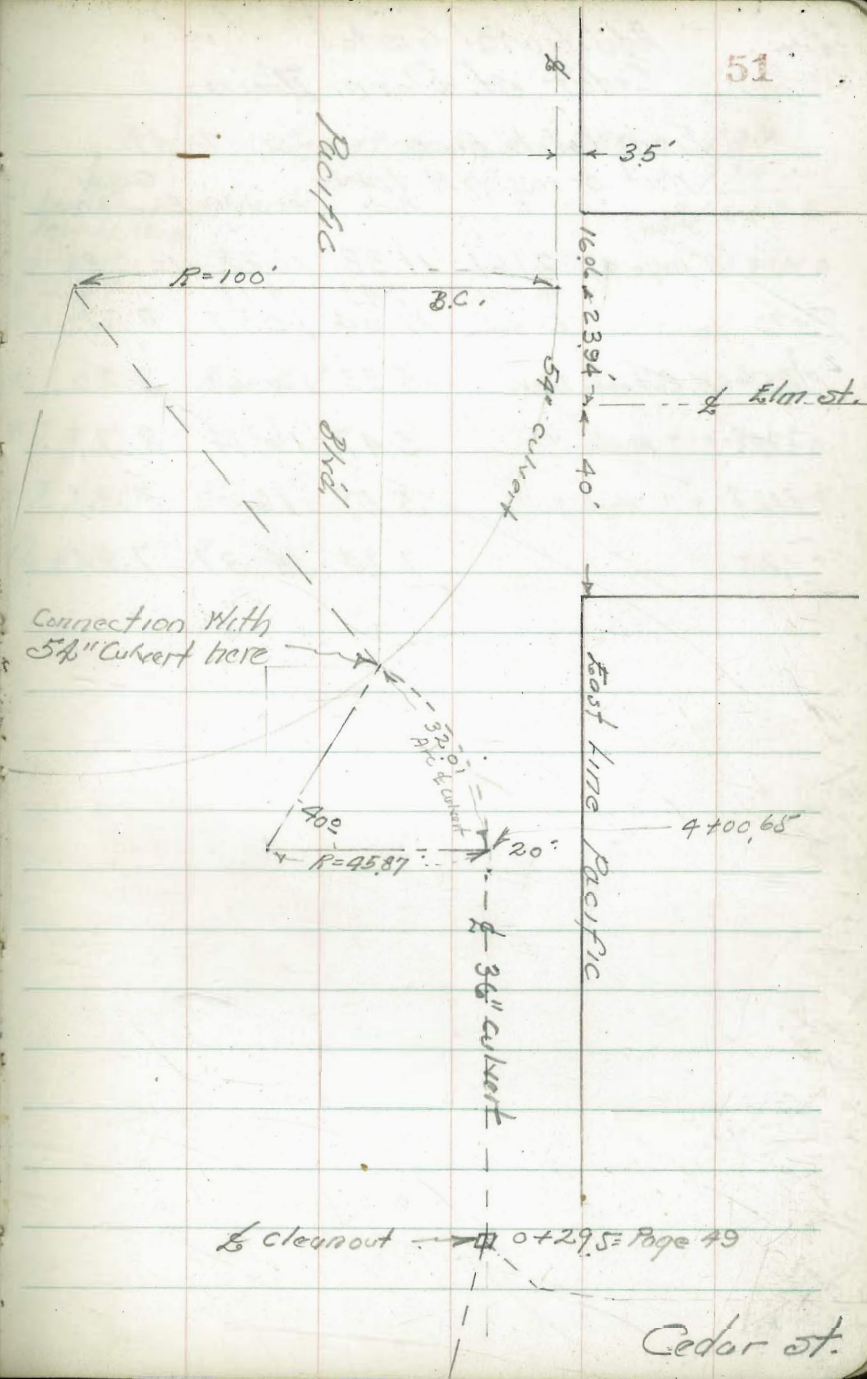 51
℄
35'
Pacific
R=100'
B.C.
16.06
23.94'
54" culvert
℄ Elm st.
Blvd.
40'
Connection With
54" Culvert here
East Line Pacific
32.01
Arc ℄ culvert
40°
4+00.65
R=45.87'
20'
℄ 36" culvert
℄ cleanout
0+29.5= Page 49
Cedar st.